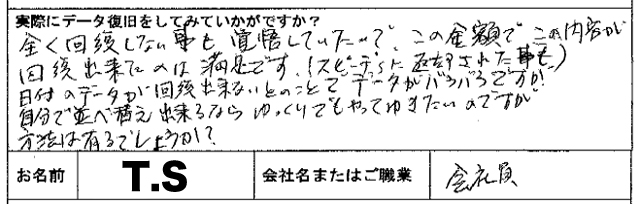 実際にデータ復旧をしてみていかがですか？
全く回復しない事も覚悟していたので、この金額でこの内容が
回復出来たのは満足です。（スピーディに返却された事も）
日付のデータが回復出来ないとのことでデータがバラバラですが、
自分で並べ替え出来るならゆっくりでもやってゆきたいのですが
方法は有るでしょうか？
お名前 T.S 会社名またはご職業 会社員